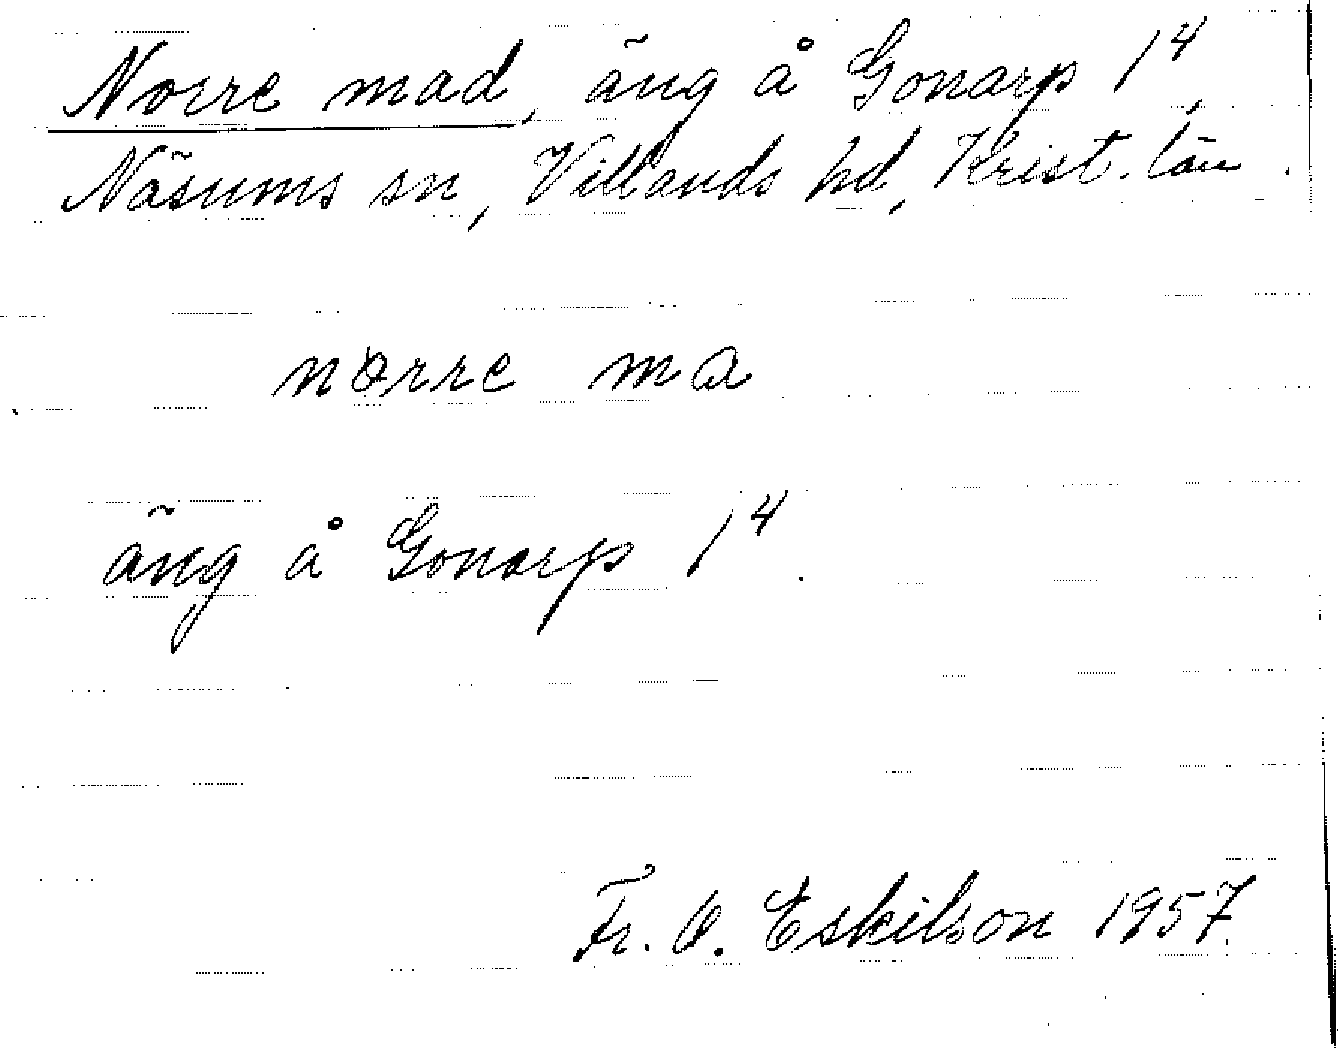 Norre mad, äng å Gonarp 1⁴,
Näsums sn, Villands hd, Krist. län.
nørre ma
äng å Gonarp 1⁴.
Fr. O. Eskilson 1957.